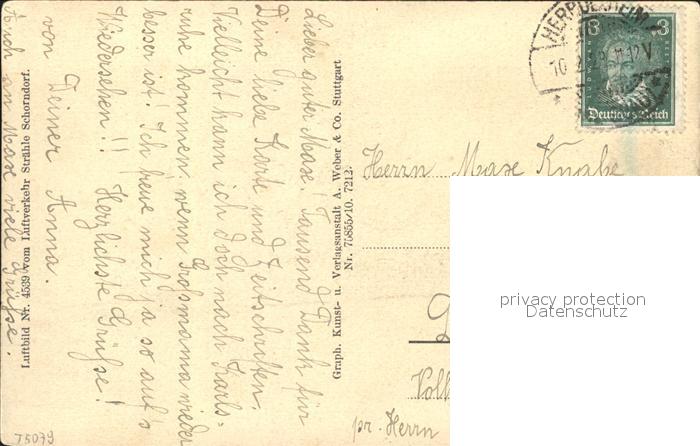 Lieber guter Max. Tausend Dank für
Deine liebe Karte und Zeitschriften.
Vielleicht kann ich doch nach Karls-
ruhe kommen, wenn Grosmama wieder
besser ist! Ich freue mich ja so auf's
Wiedersehen!! Herzlichste Grüße!
von Deiner Anna.
Auch an Max viele Grüße.
Luftbild Nr. 4539 vom Luftverkehr Strähle Schorndorf.
Graph. Kunst- u. Verlagsanstalt A. Weber & Co. Stuttgart
Nr. 75855/10. 7212.
3 3
Deutsches Reich
Herrn Max Knabe
Volk
pr. Herrn
privacy protection
Datenschutz
T5079